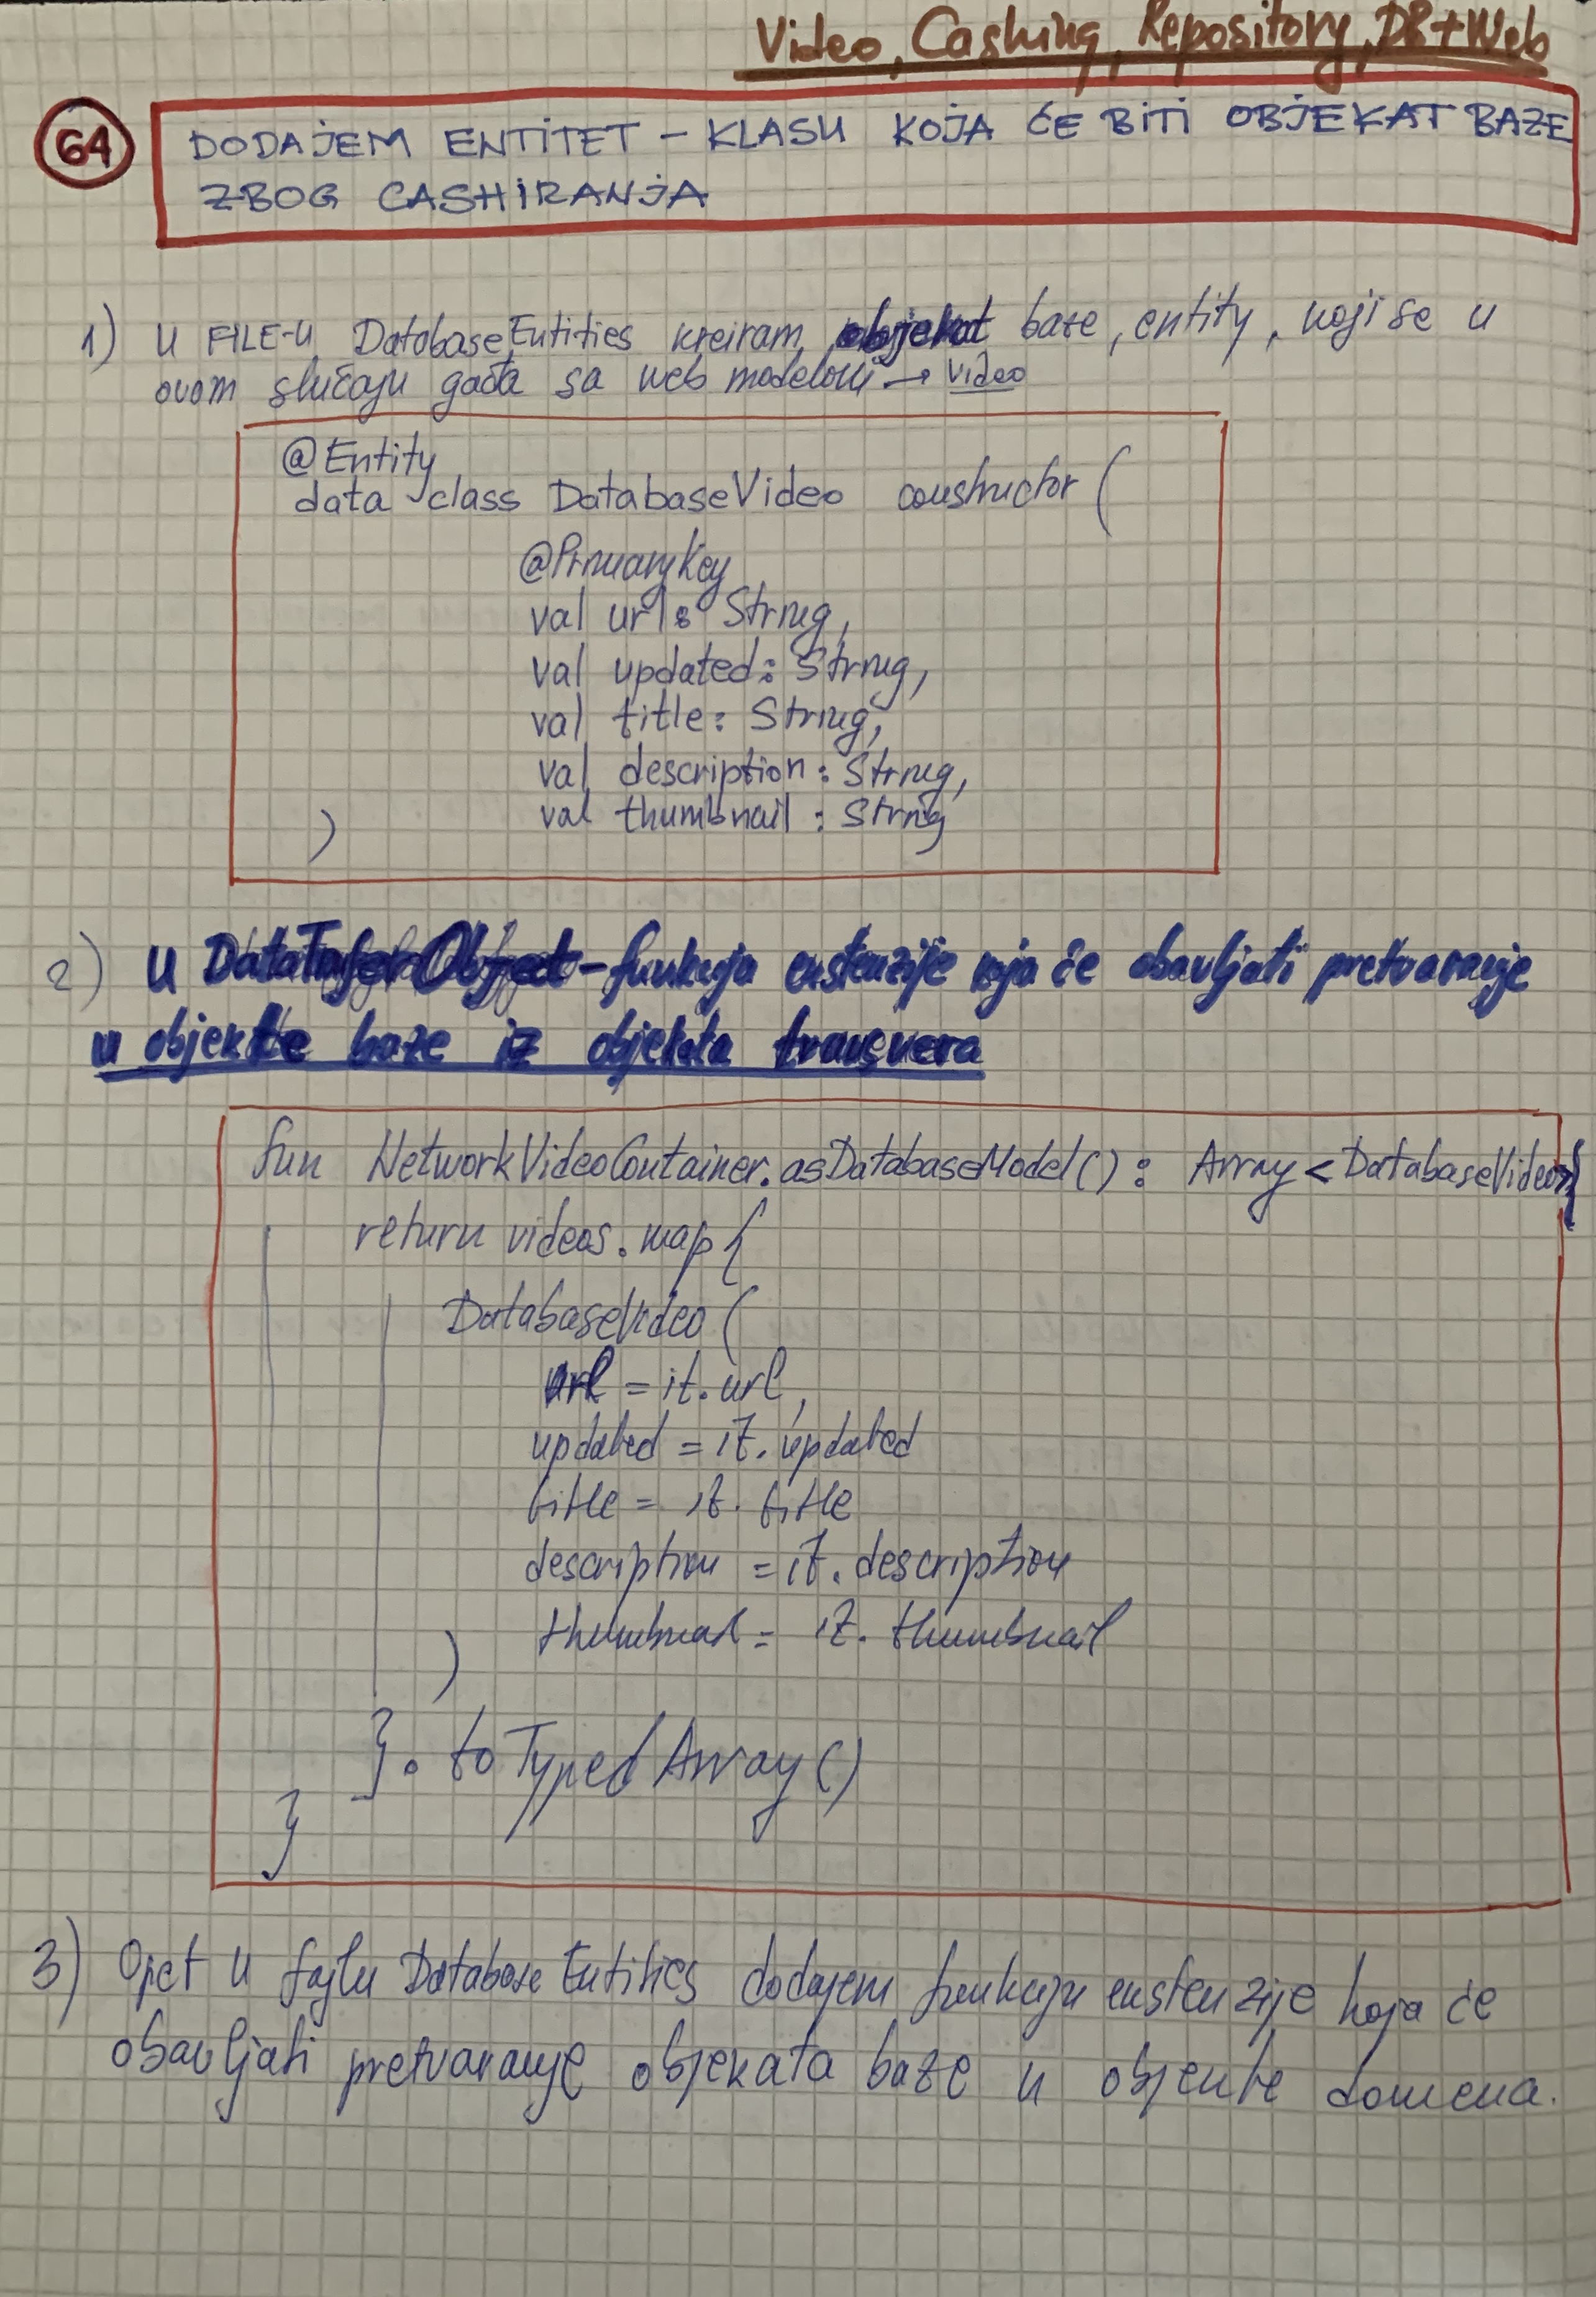 Video, Cashing, Repository, DB+Web
64
DODAJEM ENTITET - KLASU KOJA ĆE BITI OBJEKAT BAZE
ZBOG CASHIRANJA
1) U FILE-U DatabaseEntities kreiram objekat baze, entity, koji se u
ovom slučaju gađa sa web modelom → Video
@Entity
data class DatabaseVideo constructor (
@PrimaryKey
val url: String,
val updated: String,
val title: String,
val description: String,
val thumbnail: String
)
2) U DataTransferObject - funkcija ekstenzije koja će obavljati pretvaranje
u objekte baze iz objekata transvera
fun NetworkVideoContainer.asDatabaseModel(): Array<DatabaseVideo>{
return videos.map {
DatabaseVideo (
url = it.url,
updated = it.updated
title = it.title
description = it.description
thumbnail = it.thumbnail
)
}.toTypedArray()
}
3) Opet u fajlu DatabaseEntities dodajem funkciju ekstenzije koja će
obavljati pretvaranje objekata baze u objekte domena.